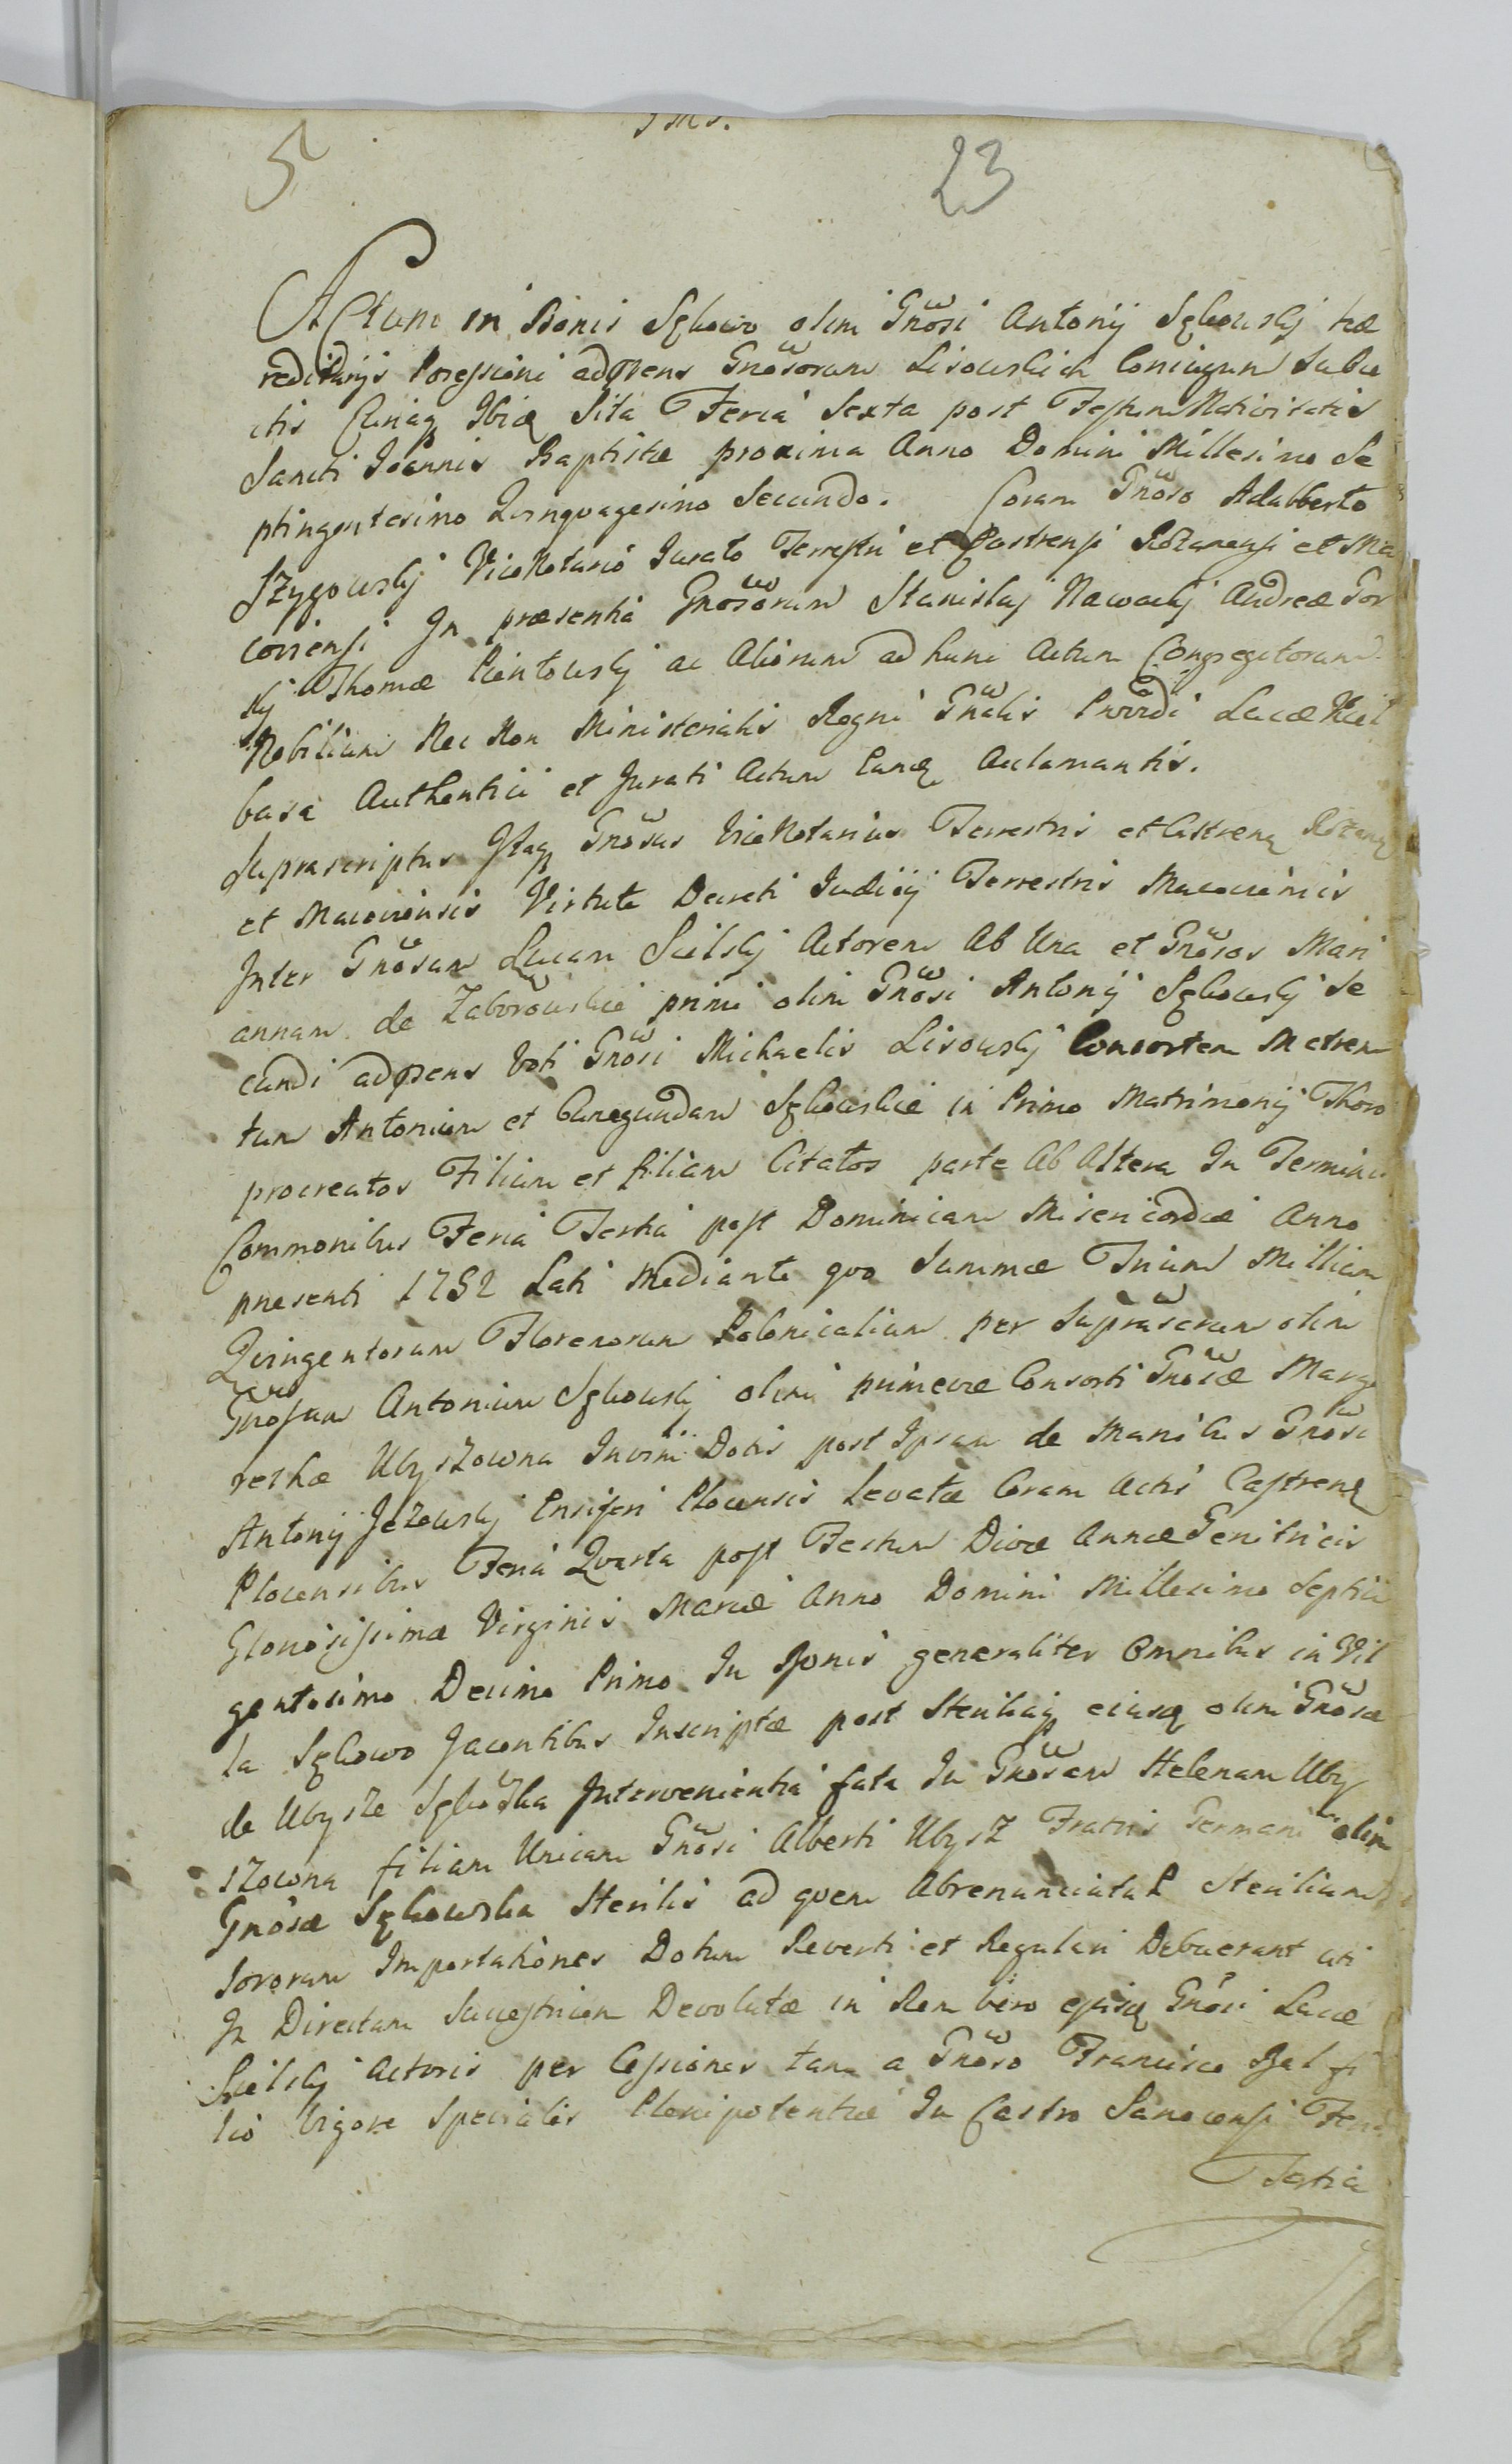 5
23
Actum in Bonis Sgkowo olim Gnosi Antonij Sgkowskj hæ
reditarijs Possessioni adpræns Gnosorum Lisowskich Coniugum Subie
ctis Curiaq Ibiq Sita Feria Sexta post Festum Nativitatis
Sancti Joannis Baptistæ proxima Anno Domini Millesimo Se
ptingentesimo Quinquagesimo Secundo. Coram Gnoso Adalberto
Szygowskj ViceNotario Jurato Terrestri et Castrensi Rozanensi et Ma
coviensi In præsentia Gnosorum Stanislaj Nawockj Andreæ Gor
skj Thomæ Pientowskj ac Aliorum ad hunc Actum Congregatorum
Nobilium Nec Non Ministerialis Regni Gnalis Providi Lucæ Kieł
basa Authentici et Jurati Actum hancq Aclamantis.
Suprascriptus Itaq Gnosus ViceNotarius Terrestris et Castrenq Rozanq
et Macoviensis Virtute Decreti Judicij Terrestris Macoviensis
Inter Gnosum Lucam Sielskj Actorem Ab Una et Gnosos Mari
annam de Zaborowskie primi olim Gnosi Antonij Sgkowskj Se
cundi adpræns Voti Gnosi Michaelis Lisowskj Consortem Matrem
tum Antonium et Cunegundam Sgkowskie in Primo Matrimonij Thoro
procreatos Filium et filiam Citatos parte Ab Altera In Terminis
Commonibus Feria Tertia post Dominicam Misericordiæ Anno
presenti 1752 Lati Mediante quo Summæ Trium Millium
Quingentorum Florenorum Polonicalium per Suprascrum olim
Gnosum Antonium Sgkowskj olim primevæ Consorti Gnosæ Marga
rethæ Ubyszowna Intuitu Dotis post Ipsam de Manibus Gnosi
Antonij Jezewskj Ensiferi Plocensis Levatæ Coram Actis Castrenq
Plocensibus Feria Quarta post Festum Divæ Annæ Genitricis
Gloriosissimæ Virginis Mariæ Anno Domini Millesimo Septin
gentesimo Decimo Primo In Bonis generaliter Omnibus in Vil
la Sgkowo Jacentibus Inscriptæ post Steriliaq eiusq olim Gnosæ
de Ubysze Sgkowska Intervenientia fata In Gnosam Helenam Uby
szowna filiam Unicam Gnosi Alberti Ubysz Fratris Germani olim
Gnosæ Sgkowska Sterilis ad quem Abrenunciatæ Sterilium
Sororum Importationes Dotum Reverti et Regulari Debuerant uti
In Directam Successricem Devolutæ in Rem vero episq Gnosi Lucæ
Sielskj Actoris per Cessiones tam a Gnoso Francisco Bal fi
lio Vigore Specialis Plenipotentiæ In Castro Sanocensi Feria
Tertia